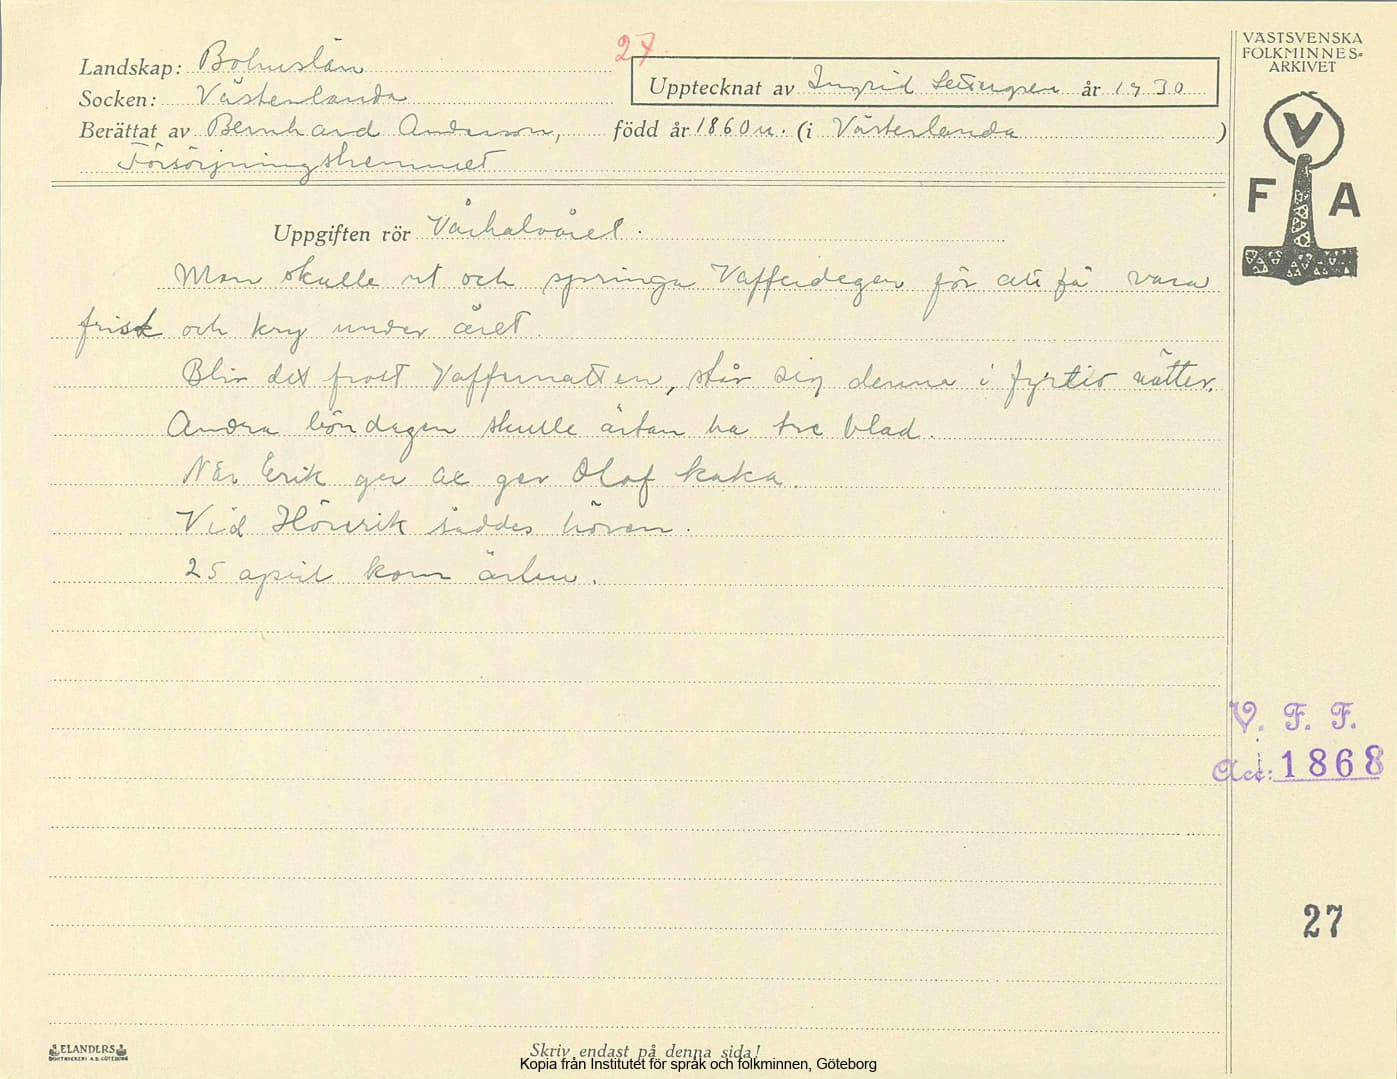 27.
Landskap: Bohuslän
Upptecknat av Ingrid år 1930
Socken: Västerlanda
Berättat av Bernhard Andersson, född år 1860 (i Västerlanda)
Försörjningshemmet
Uppgiften rör Vårhalvåret.
Man skulle ut och springa Vafferdagen för att få vara
frisk och kry under året.
Blir det frost Vaffernatten, står sig denna i fyrtio nätter.
Andra böndagen skulle ärtan ha tre blad.
När Erik ger ax ger Olof kaka.
Vid Hörerik såddes hören.
25 april kom ärlan.
VÄSTSVENSKA
FOLKMINNES-
ARKIVET
V
F A
V. F. F.
Acc: 1868
27
ELANDERS
BOKTRYCKERI A.B. GÖTEBORG
Skriv endast på denna sida!
Kopia från Institutet för språk och folkminnen, Göteborg